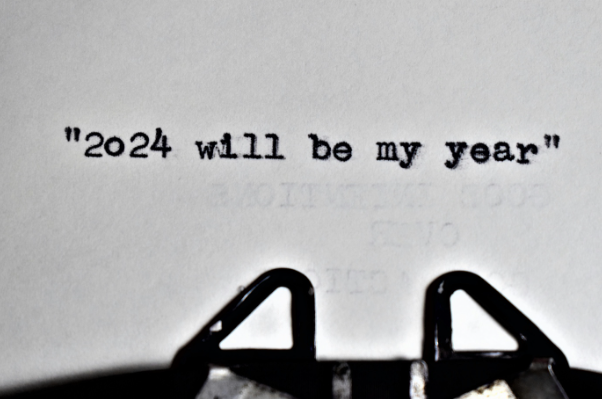 "2024 will be my year"